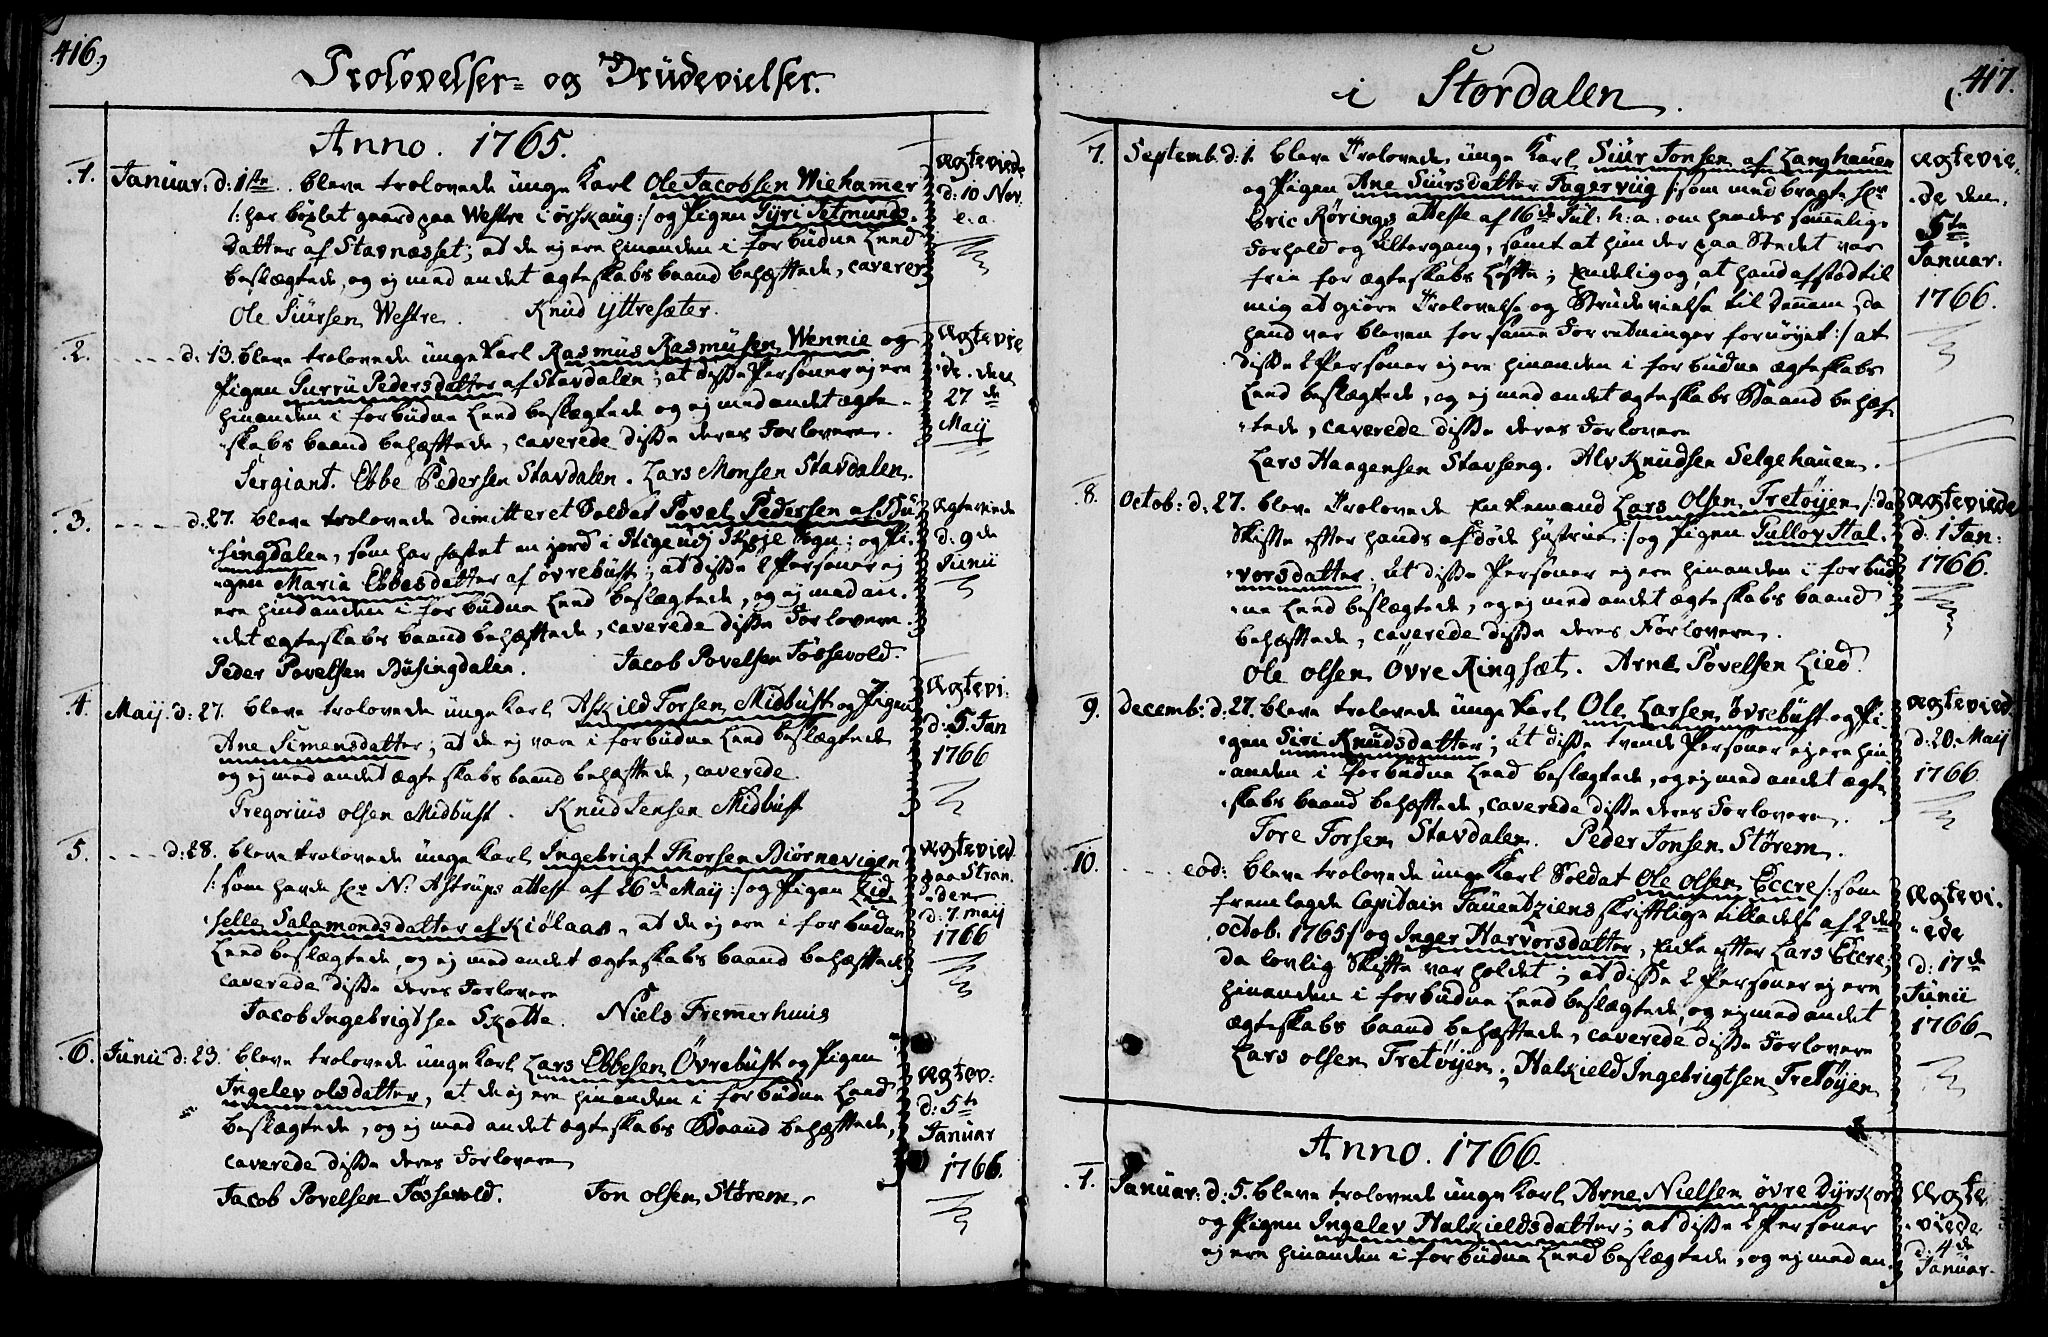 416,
Trolovelser- og Brudevielser.
Anno. 1765.
.1. Januar: d: 1ste. bleve trolovede unge Karl Ole Jacobsen Wiehamer
/: har böxlet gaard paa Westre i Örskaug :/ og Pigen Gyri Setmunds-
Datter af Stavnæsset; at de ej ere hinanden i forbudne Leed
beslægtede, og ej med andet ægteskabs baand behæfftede, caverer
Ole Siursen Westre. Knud Yttresæter.
Ægteviede
d: 10 Nov.
e. a.
.2. - - - - d: 13. bleve trolovede unge Karl Rasmus Rasmusen Wennie og
Pigen Gurru Pedersdatter af Stavdalen; at disse 2 Personer ej ere
hinanden i forbudne Leed beslægtede og ej med andet ægte-
-skabs baand behæfftede, caverede disse deres Forlovere.
Sergiant. Ebbe Pedersen Stavdalen. Lars Monsen Stavdalen.
Ægtevie
-de. den
27 de
Maij
.3. - - - - d: 27. bleve trolovede dimitteret Soldat Povel Pedersen af Bu-
-singdalen, som har fæstet en jord i Skeje Sogn; og Pi-
-gen Maria Ebbesdatter af Övrebust; at disse 2 Personer ej
ere hindanden i forbudne Leed beslægtede, og ej med an-
-det ægteskabs baand behæfftede, caverede disse Forlovere
Peder Povelsen Busingdalen. Jacob Povelsen Fössevold.
Ægteviede
d: 9 de
Junii
.4. Maij. d: 27. bleve trolovede unge Karl Askield Forsen Midbust og Pigen
Ane Simensdatter; at de ej vare i forbudne Leed beslægtede
og ej med andet ægteskabs baand behæfftede, caverede
Gregorius Olsen Midbust. Knud Jensen Midbust
Ægtevi:
d: 5 Jan
1766
5. - - - - d: 28. bleve trolovede unge Karl Ingebrigt Thorsen Biörnevigen
/: som havde Hr N. Astrups attest af 26 de Maij :/ og Pigen Lid-
-selle Salamondsdatter af Kiölaas, at de ej ere i forbudne
Leed beslægtede, og ej med andet ægteskabs baand behæfftede,
caverede disse deres Forlovere
Jacob Ingebrigtsen Skotte. Niels Fremerhuus
Ægtevied
paa Stran-
-den
d: 7. Maij
1766
.6. Junii d: 23. bleve trolovede unge Karl Lars Ebbesen Övrebust og Pigen
Ingelev Olsdatter, at de ej ere hinanden i forbudne Leed
beslægtede, og ej med andet ægteskabs Baand behæfftede,
caverede disse deres Forlovere
Jacob Povelsen Fössevold. Jon Olsen Störem.
Ægtev:
d: 5te
Januar
1766.
417.
i Stordalen.
7. Septemb. d: 1. bleve Trolovede unge Karl Siur Jonsen af Langhauen
og Pigen Ane Siursdatter Fagervug /: som med bragte Hr
Eric Rörings attest af 16 de Jul: h: a: om hendes sömelige
Forhold og Altergang, samt at hun der paa Stedet var
frie for ægteskabs Löfte; Endelig og, at hand afstod til
mig at giöre Trolovelse og Brudevielse til Dennem, da
hand var bleven for same Forretninger fornöyet :/ at
disse 2 Personer ej ere hinanden i forbudne ægteskabs
Leed beslægtede, og ej med andet ægteskabs Baand behæf-
-tede, caverede disse deres Forlovere
Lars Haagensen Stavseng. Alv Knudsen Selgehauen.
Ægtevie-
-de den
5te
Januar:
1766.
.8. Octob: d: 27. bleve Trolovede Enkemand Lars Olsen Fretöyen /: da
Skifte efter hands afdöde hustrue :/ og Pigen Gullov Hal-
-vorsdatter, at disse Personer ej ere hinanden i forbud-
-ne Leed beslægtede, og ej med andet ægteskabs baand
behæfftede, caverede disse deres Forlovere.
Ole Olsen Övre Ringsæt. Arne Povelsen Lied.
Ægteviede
d: 1 Jan:
1766.
9. Decemb: d: 27. bleve trolovede unge Karl Ole Larsen Övrebust og Pi-
-gen Siri Knudsdatter; at disse tvende Personer ej ere hin-
-anden i forbudne Leed beslægtede, og ej med andet ægte-
-skabs baand behæfftede, caverede disse deres Forlovere.
Tore Forsen Stavdalen. Peder Jonsen Störem.
Ægtevied
d: 20. Maij
1766.
10. - - - - eod: bleve trolovede unge Karl Soldat Ole Olsen Eccre /: som
fremlagde Capitain Tauentziens skrifftlige tilladelse af 2 de
octob. 1765/ og Inger Harvorsdatter, Enke efter Lars Eccre,
da lovlig Skiffte var holdet; at disse 2 Personer ej ere
hinanden i forbudne Leed beslægtede, og ej med andet
ægteskabs baand behæfftede, caverede disse Forlovere
Lars Olsen Fretöyen. Halkield Ingebrigtsen Fretöyen
Ægtevi-
-ede
d: 17 de
Junii
1766
Anno. 1766.
.1. Januar: d: 5. bleve trolovede unge Karl Arne Nielsen Övre Dyrkor
og Pigen Ingelev Halkieldsdatter; at disse 2 Personer
ej ere hinanden i forbudne Leed beslægtede, og ej med an-
Ægte-
-viede
d: 4 de
Januar.